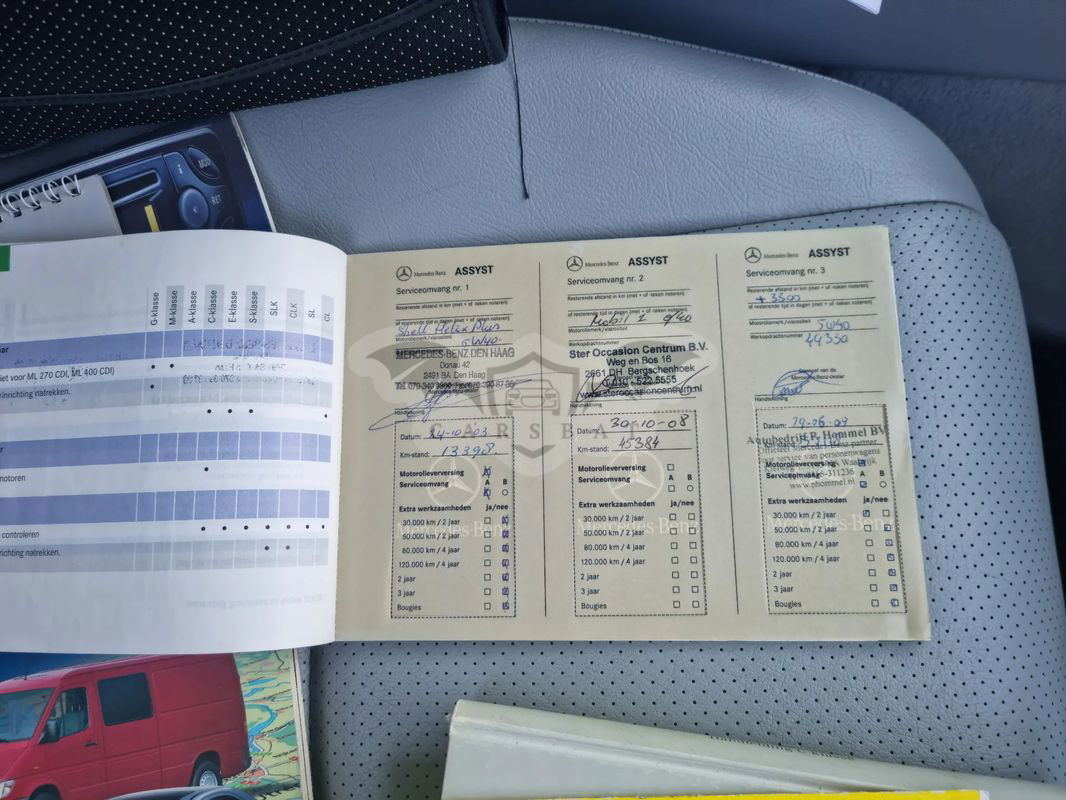 MODE
RET
G-klasse
M-klasse
A-klasse
C-klasse
E-klasse
S-klasse
SLK
CLK
SL
CL
aar
iet voor ML 270 CDI, ML 400 CDI)
inrichting natrekken.
aar
motoren
controleren
nrichting natrekken.
Mercedes-Benz ASSYST
Serviceomvang nr. 1
Resterende afstand in km (met + of -teken noteren)
of resterende tijd in dagen (met + of -teken noteren)
Shell Helix Plus
Motoroliemerk/viscositeit
5W40
MERCEDES-BENZ DEN HAAG
Donau 42
2491 BA Den Haag
Handtekening
Datum: 24-10-03
Km-stand: 13398
Motorolieverversing
Serviceomvang A B
Extra werkzaamheden ja/nee
30.000 km / 2 jaar
50.000 km / 2 jaar
80.000 km / 4 jaar
120.000 km / 4 jaar
2 jaar
3 jaar
Bougies
Mercedes-Benz ASSYST
Serviceomvang nr. 2
Resterende afstand in km (met + of -teken noteren)
of resterende tijd in dagen (met + of -teken noteren)
Mobil 1
Motoroliemerk/viscositeit
Werkopdrachtsnummer
Ster Occasion Centrum B.V.
Weg en Bos 16
2661 DH Bergschenhoek
T. 010 - 522 5555
www.steroccasioncentrum.nl
Handtekening
Datum: 30-10-08
Km-stand: 45384
Motorolieverversing
Serviceomvang A B
Extra werkzaamheden ja/nee
30.000 km / 2 jaar
50.000 km / 2 jaar
80.000 km / 4 jaar
120.000 km / 4 jaar
2 jaar
3 jaar
Bougies
Mercedes-Benz ASSYST
Serviceomvang nr. 3
Resterende afstand in km (met + of -teken noteren)
+ 3300
of resterende tijd in dagen (met + of -teken noteren)
Motoroliemerk/viscositeit 5W40
Werkopdrachtsnummer 49350
Stempel van de
Mercedes-Benz-dealer
Handtekening
Datum:
Autobedrijf P. Hommel BV
Officieel Mercedes-Benz partner
voor service van personenwagens
Km-stand:
www.phommel.nl
Motorolieverversing
Serviceomvang A B
Extra werkzaamheden ja/nee
30.000 km / 2 jaar
50.000 km / 2 jaar
80.000 km / 4 jaar
120.000 km / 4 jaar
2 jaar
3 jaar
Bougies
CARSEAT
Mercedes-Benz
Mercedes-Benz
Mercedes-Benz